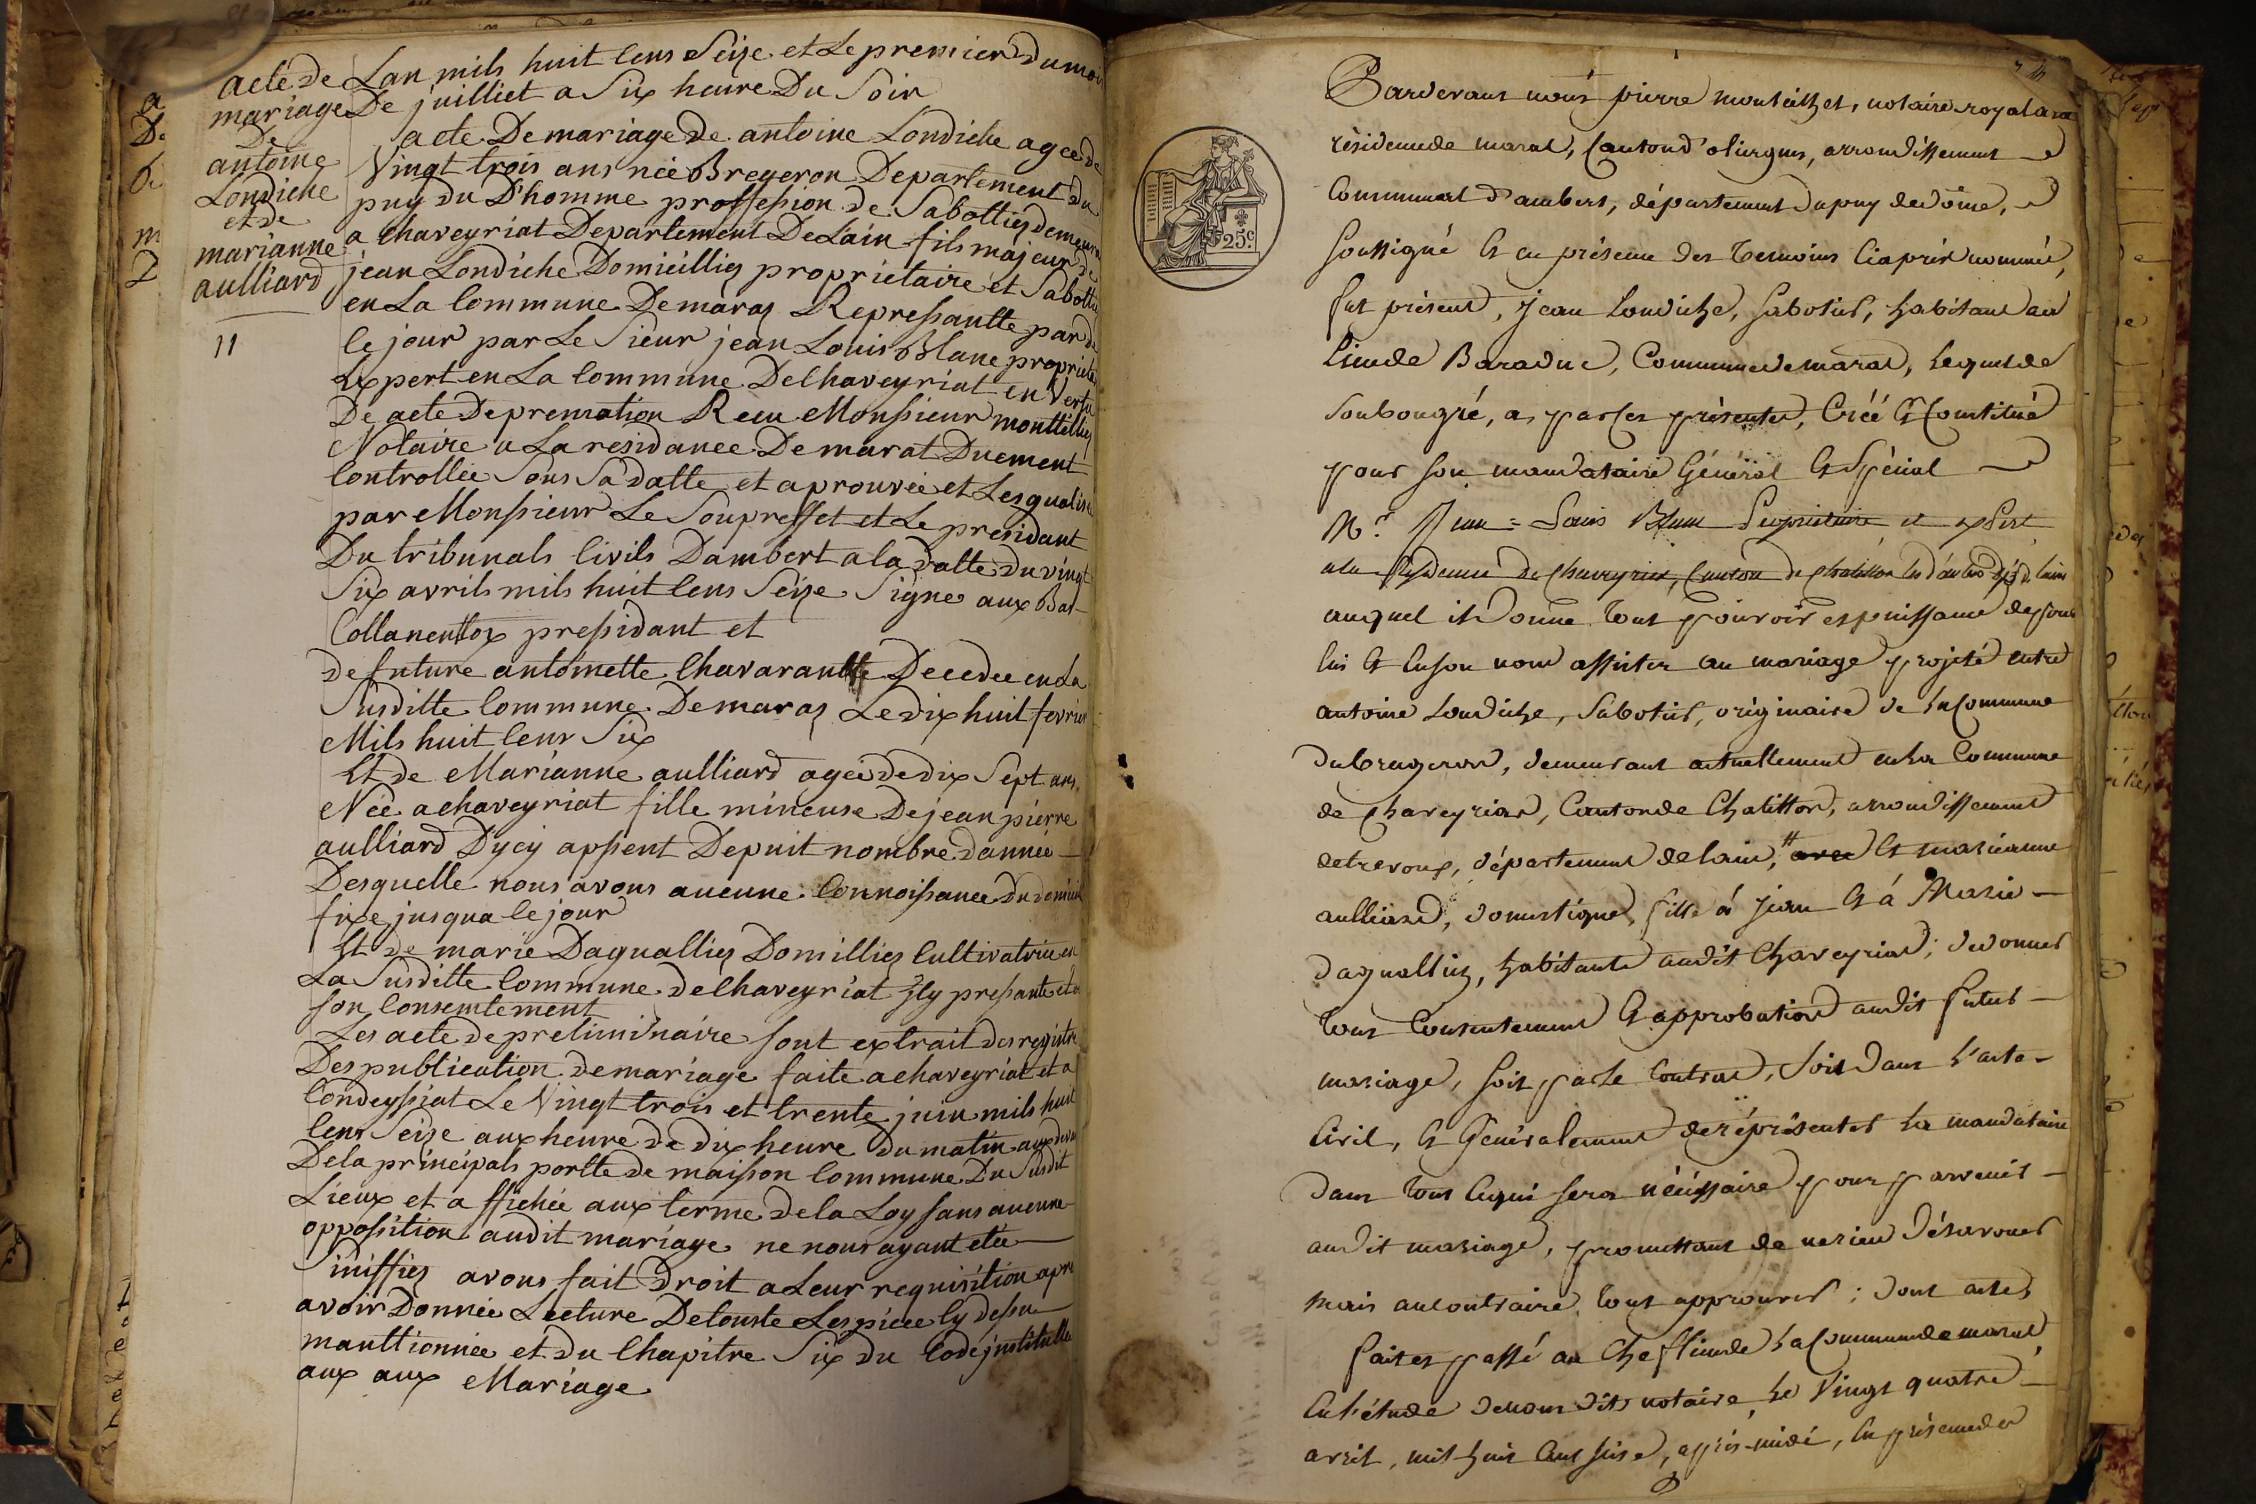 acte de
mariage
De
antoine
Londiche
et de
marianne
aulliard
11
Lan mils huit Cens Seize et Le premier Du moi
De juilliet a Six heure Du Soir
acte De mariage De antoine Londiche agee de
Vingt trois ans née Bregeron Departement du
puy du D'homme proffession de Sabottiez demeura
a Chaveyriat Departement De Lain fils majeur de
jean Londiche Domicilliez proprietaire et Sabottie
en La Commune De maraz Repressantte par de
Ce jour par Le Sieur jean Louis Blanc propriet
Expert en La Commune De Chaveyriat en Vertu
De acte De premation Recu Monssieur monttillier
Notaire a La residance De marat Duement
Controllée Sous Sa datte et aprouvée et Lesqualisé
par Monssieur Le Souprefset et Le presidant
Du tribunals Civils Dambert a la datte du vingt
Six avrils mils huit Cens Seize Signe aux Bas
Collanenttox pressidant et
de future antoinette Chavarantte Decedee en La
Susditte Commune De maraz Le dix huit fevrier
Mils huit Cens Six
Et de Marianne aulliard ageé de dix Sept ans
Née a chaveyriat fille mineuse De jean pierre
aulliard Dycy apsent Depuit nombre d'année
Desquelle nous avons aucune Connoissance Du domicil
fixe jusqua Ce jour
Et de marie Daguallier Domilliez Cultivatrice en
La Susditte Commune de Chaveyriat Ily pressante et a
son Consentement
Les acte de preliminaire sont extrait des registre
Des publication de mariage faite a chaveyriat et a
Condeyssiat Le Vingt trois et trente juin mils huit
Cens Seize aux heure de dix heure du matin aux devan
De la principals portte de maisson Commune Du Susdit
Lieux et affichée aux terme de la Loy sans aucune
oppossition audit mariage ne nous ayant etée
Siniffiez avons fait Droit a Leur requisition apre
avoir Donnée Lecture De touste Les piece Cy dessu
manttionnée et du Chapitre Six du Code jnstitulle
aux aux Mariage
Pardevant nous pierre monteilhet, notaire royal a la
résidence de marat, Canton d'oliergues, arrondissement
Communal d'ambert, département du puy de dôme,
soussigné & en présence des temoins Ci après nommés,
fut présent, Jean Londiche, Sabotier, habitant au
lieu de Baraduc, Commune de marat, lequel de
son bon gré, a, par Ces présentes, Créé & Constitué
pour son mandataire Général & Spécial
Mr. Jean = Louis Blanc Propriétaire et expert
a la Résidence de Chaveyriat, Canton de Chatillon
auquel il donne tout pouvoir et puissance de pour
lui & en son nom assister au mariage projeté entre
antoine Londiche, Sabotier, originaire de la Commune
du brugeron, demeurant actuellement en la Commune
de Chaveyriat, Canton de Chatillon, arrondissement
de trevoux, département de l'ain, avec & marianne
aulliard, domestique, fille à Jean & à Marie
daguallier, habitante audit Chaveyriat; de donner
tout Consentement & approbation audit futur
mariage, soit par le Contrat, soit dans l'acte
Civil, & Généralement de réprésenter le mandataire
dans tout Ce qui sera nécéssaire pour parvenir
audit mariage, promettant de ne rien désavouer
mais au contraire tout approuver; dont acte,
fait et passé au Chef lieu de la Commune de marat,
En l'étude de nous dit notaire, le vingt quatre
avril, mil huit Cent seize, après-midi, En présence de
25c